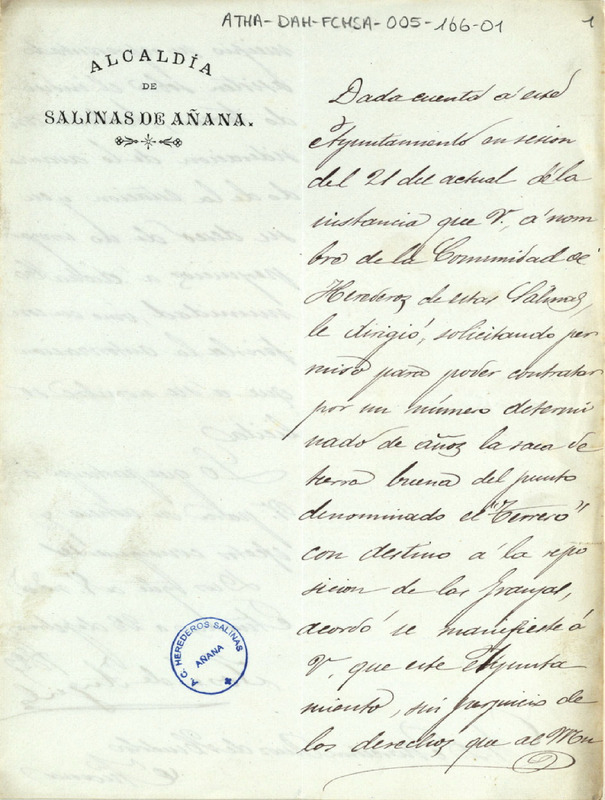 ATHA-DAH-FCHSA-005-166-01
1
ALCALDÍA
DE
SALINAS DE AÑANA.
Dada cuenta á este
Ayuntamiento en sesion
del 21 del actual de la
instancia que V., á nom
bre de la Comunidad de
Herederos de estas Salinas,
le dirigió, solicitando per
miso para poder contratar
por un número determi
nado de años la saca de
tierra buena del punto
denominado el "Terrero"
con destino á la repo
sicion de las Granjas,
acordó se manifieste á
V. que este Ayunta
miento, sin perjuicio de
los derechos que al Mu
A.C. HEREDEROS SALINAS
AÑANA